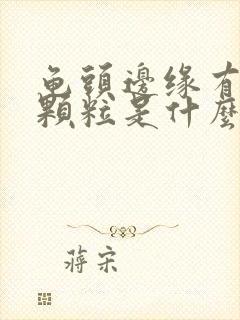 龟頭邊缘有
顆粒是什麼
蔣宋